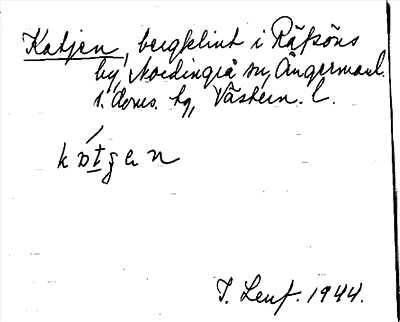 Katjen, bergklint i Räfsöns
by, Nordingrå sn, Ångermanl.
s. doms. hg, Västern. l.
kɒ́tgen
J. Lenf. 1944.